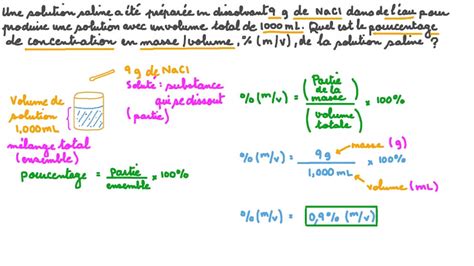 Une solution saline a été préparée en dissolvant 9 g de NaCl dans de l'eau pour
produire une solution avec un volume total de 1000 mL. Quel est le pourcentage
de concentration en masse/volume, % (m/v), de la solution saline ?
9 g de NaCl
Soluté : substance
qui se dissout
(partie)
Volume de
solution
1,000 mL
mélange total
(ensemble)
pourcentage = Partie / ensemble × 100%
% (m/v) = (Partie de la masse) / (volume totale) × 100%
masse (g)
% (m/v) = 9g / 1,000 mL × 100%
volume (mL)
% (m/v) = 0,9% (m/v)